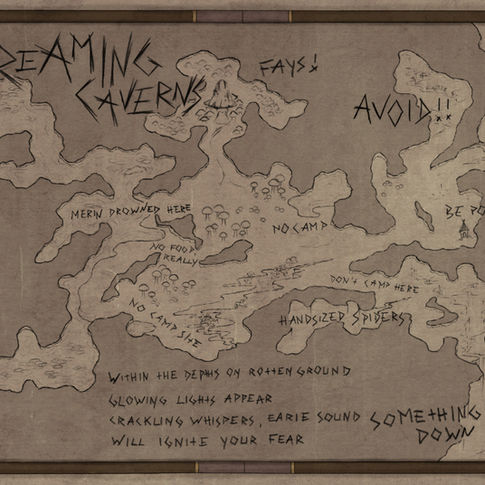 REAMING
CAVERNS
FAYS!
AVOID!!
MERIN DROWNED HERE
BE PO
NO CAMP
NO FOOD
REALLY
DON'T CAMP HERE
NO CAMP SHE
HANDSIZED SPIDERS
WITHIN THE DEPTHS ON ROTTEN GROUND
GLOWING LIGHTS APPEAR
CRACKLING WHISPERS, EARIE SOUND
WILL IGNITE YOUR FEAR
SOMETHING
DOWN